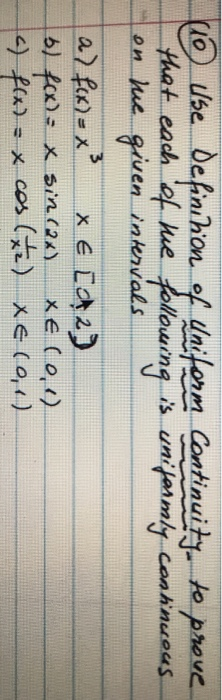 (10) Use Definition of Uniform Continuity to prove
that each of the following is uniformly continuous
on the given intervals
a) f(x) = x³ x ∈ [0,2]
b) f(x) = x sin(2x) x ∈ (0,1)
c) f(x) = x cos(1/x²) x ∈ (0,1)